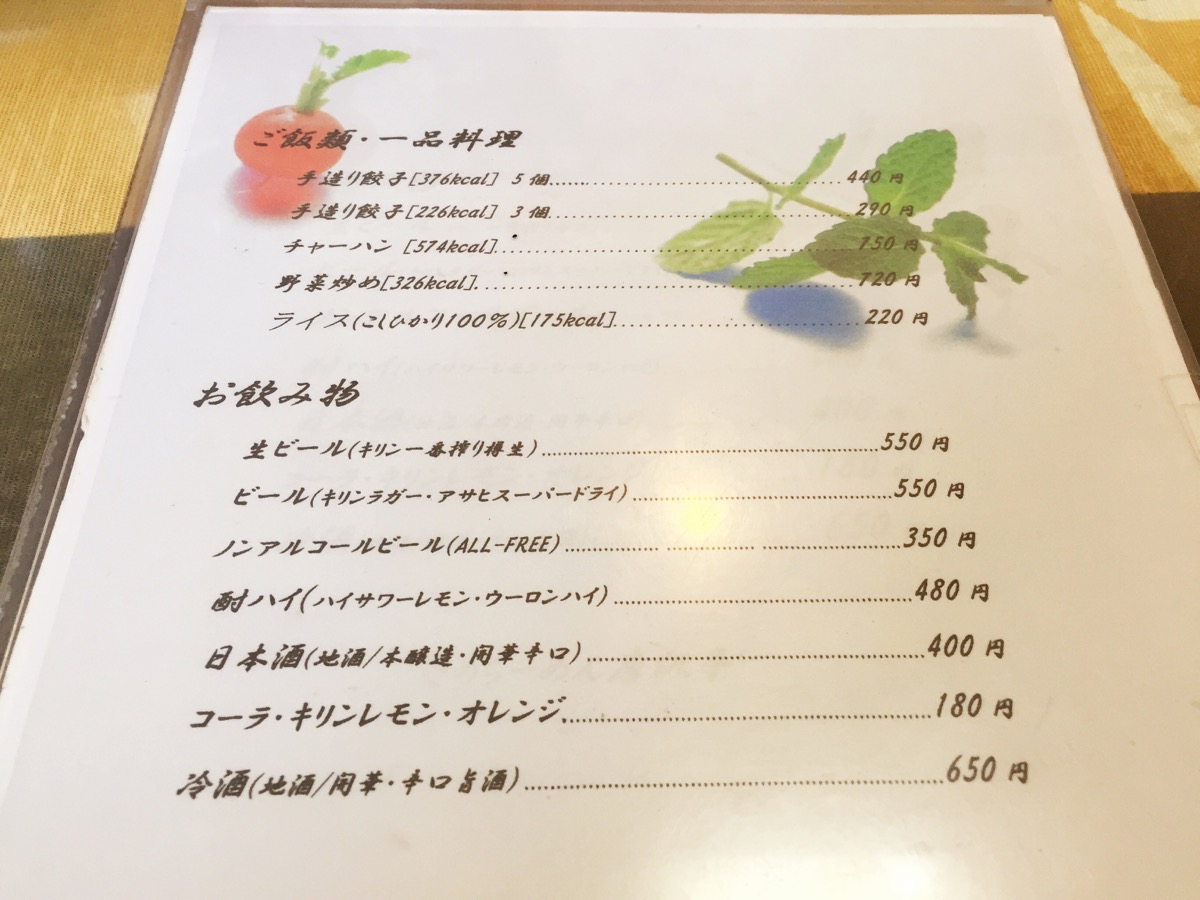 ご飯類・一品料理
手造り餃子[376kcal] 5個......440円
手造り餃子[226kcal] 3個......290円
チャーハン [574kcal]......750円
野菜炒め[326kcal]......720円
ライス(こしひかり100%)[175kcal]......220円
お飲み物
生ビール(キリン一番搾り樽生)......550円
ビール(キリンラガー・アサヒスーパードライ)......550円
ノンアルコールビール(ALL-FREE)......350円
酎ハイ(ハイサワーレモン・ウーロンハイ)......480円
日本酒(地酒/本醸造・開華辛口)......400円
コーラ・キリンレモン・オレンジ......180円
冷酒(地酒/開華・辛口旨酒)......650円